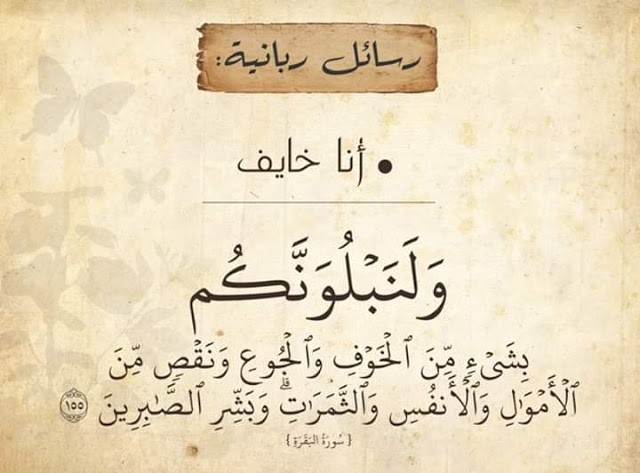 رسائل ربانية:
• أنا خايف
وَلَنَبْلُوَنَّكُم
بِشَىْءٍ مِّنَ ٱلْخَوْفِ وَٱلْجُوعِ وَنَقْصٍ مِّنَ
ٱلْأَمْوَٰلِ وَٱلْأَنفُسِ وَٱلثَّمَرَٰتِ ۗ وَبَشِّرِ ٱلصَّٰبِرِينَ ١٥٥
{ سُورَةُ البَقَرَةِ }